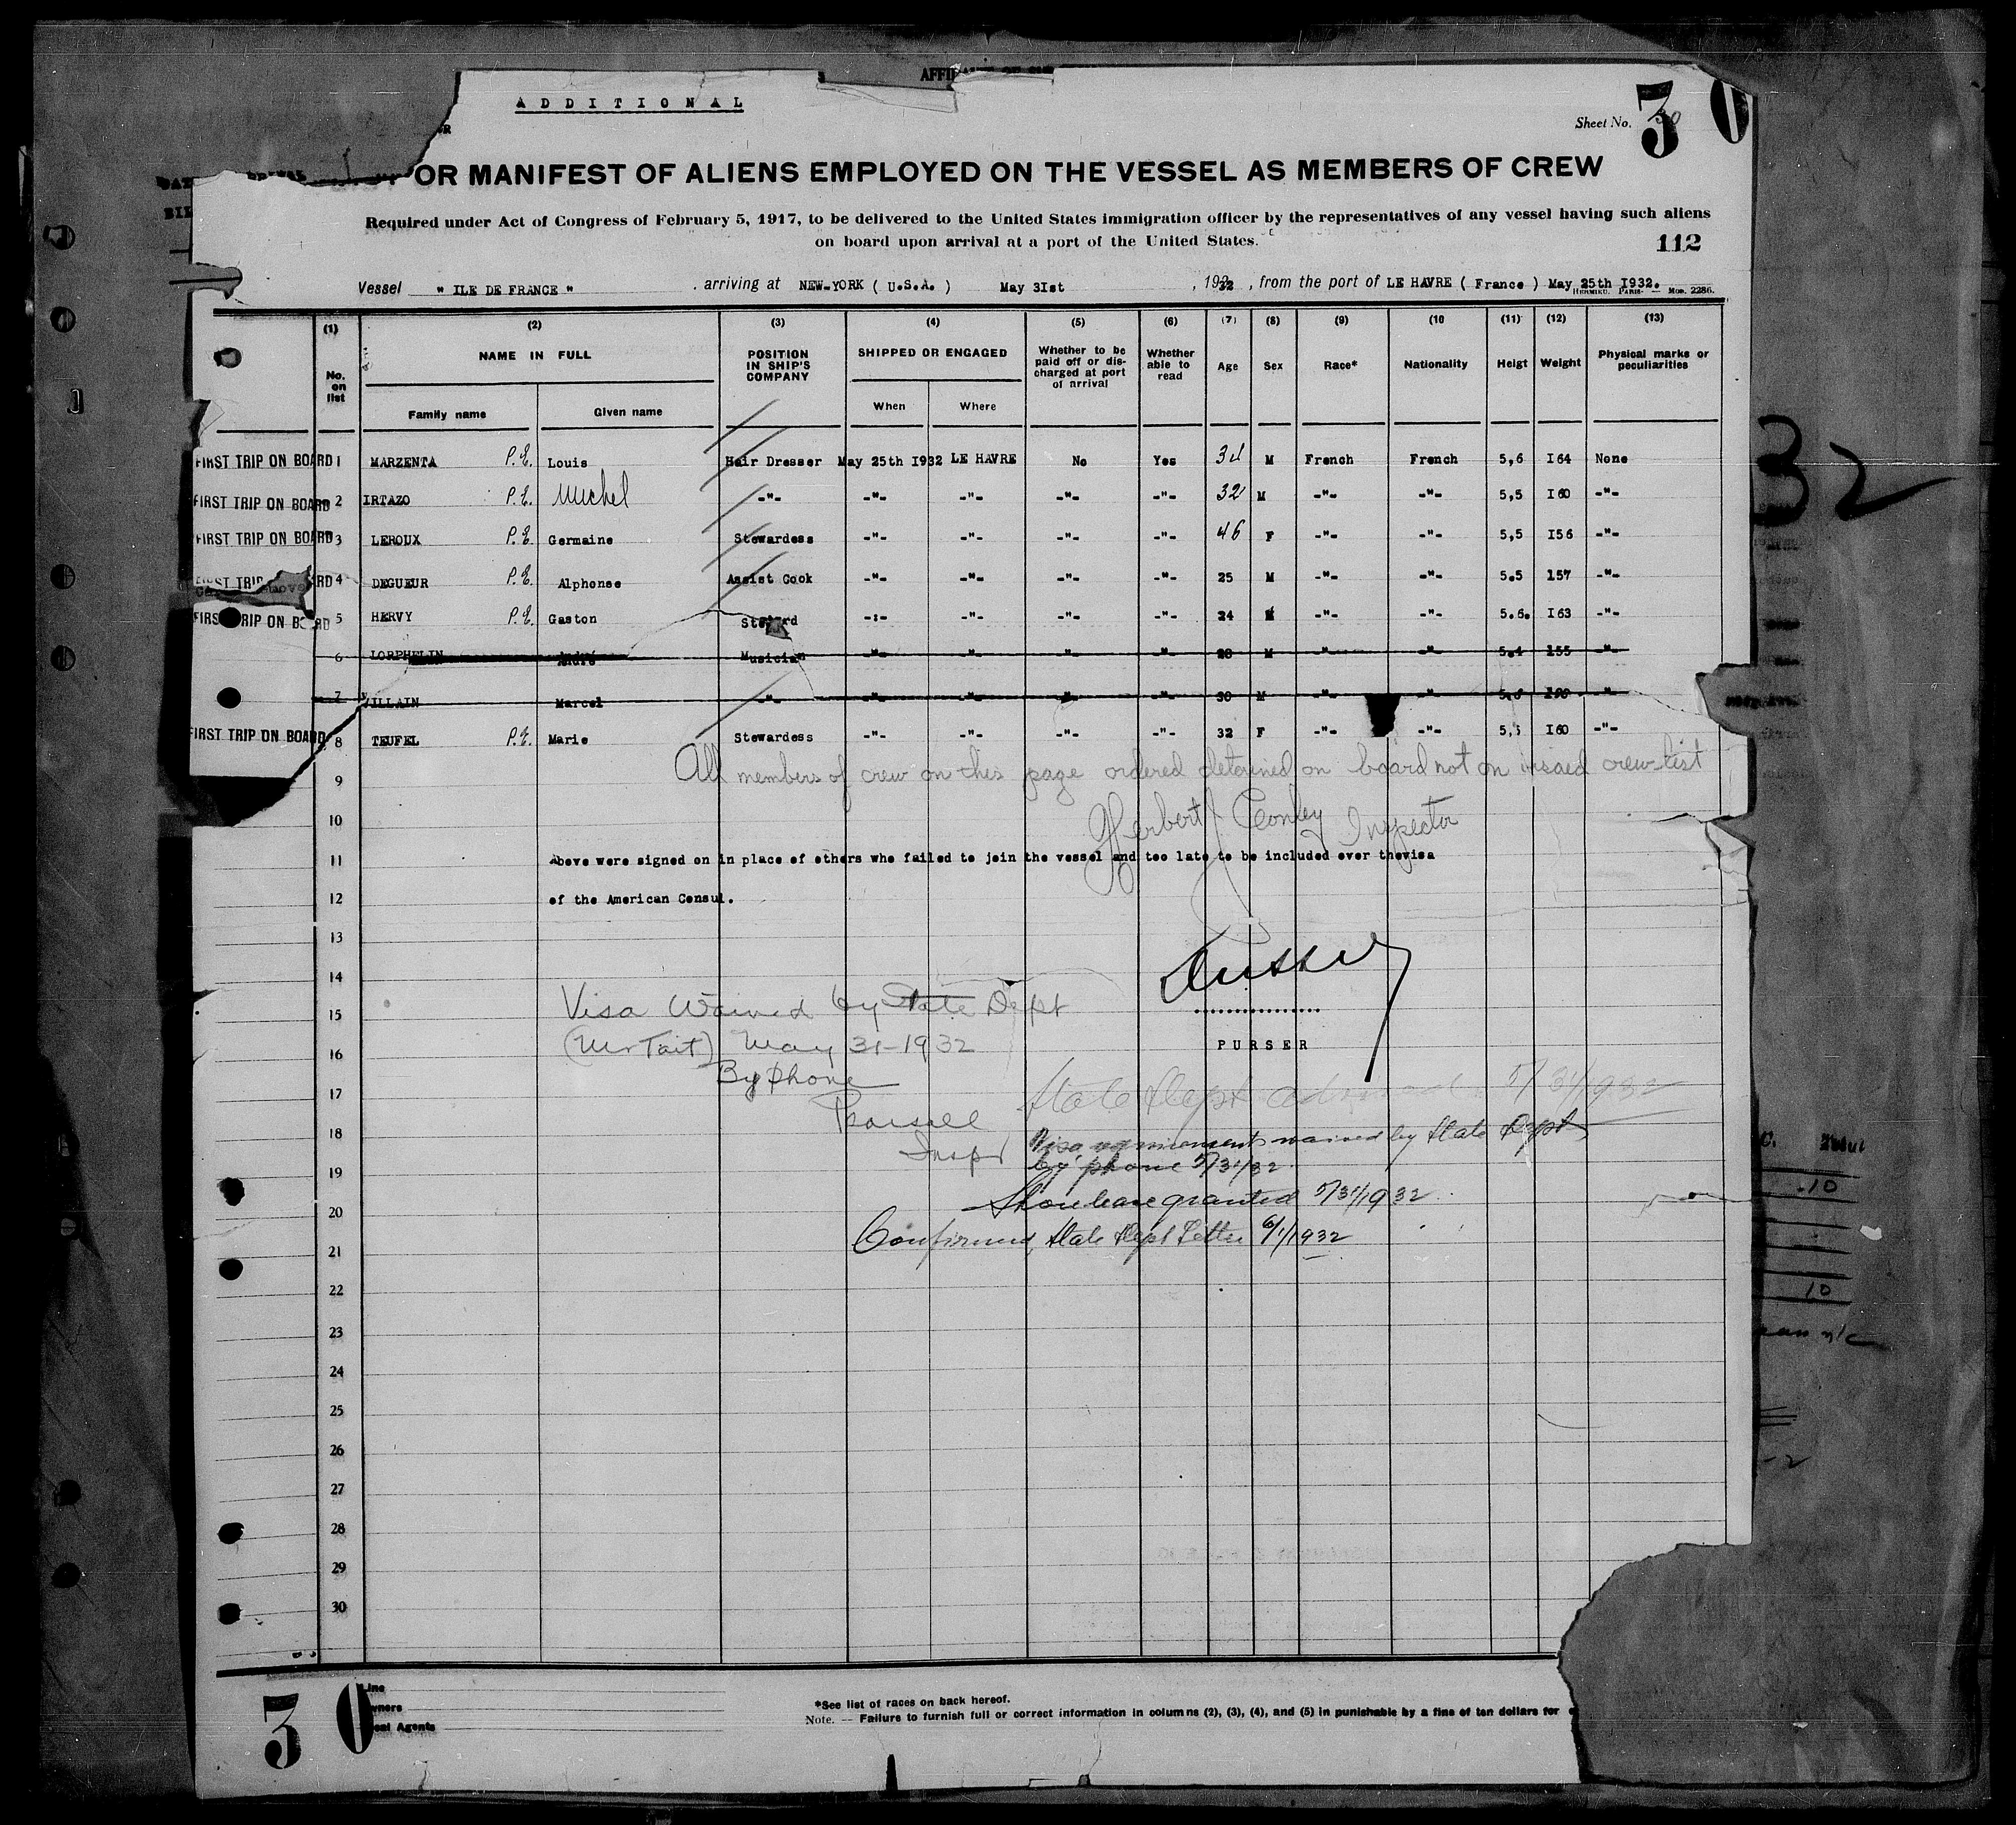 ADDITIONAL
Sheet No. 30
30
OR MANIFEST OF ALIENS EMPLOYED ON THE VESSEL AS MEMBERS OF CREW
Required under Act of Congress of February 5, 1917, to be delivered to the United States immigration officer by the representatives of any vessel having such aliens
on board upon arrival at a port of the United States.
112
Vessel " ILE DE FRANCE " arriving at NEW-YORK ( U.S.A. ) May 3Ist , 1932 , from the port of LE HAVRE ( France ) May 25th I932.
HERMIEU. PARIS- — Mod. 2286.
(1) (2) (3) (4) (5) (6) (7) (8) (9) (10 (11) (12) (13)
No. on list NAME IN FULL POSITION IN SHIP'S COMPANY SHIPPED OR ENGAGED Whether to be paid off or dis-charged at port of arrival Whether able to read Age Sex Race* Nationality Heigt Weight Physical marks or peculiarities
Family name Given name When Where
FIRST TRIP ON BOARD 1 MARZENTA P.E. Louis Hair Dresser May 25th I932 LE HAVRE No Yes 34 M French French 5,6 I64 None
FIRST TRIP ON BOARD 2 IRTAZO P.E. Michel -"- -"- -"- -"- -"- 32 M -"- -"- 5,5 I60 -"-
FIRST TRIP ON BOARD 3 LEROUX P.E. Germaine Stewardess -"- -"- -"- -"- 46 F -"- -"- 5,5 I56 -"-
FIRST TRIP BOARD 4 DEGUEUR P.E. Alphonse Assist Cook -"- -"- -"- -"- 25 M -"- -"- 5.5 157 -"-
FIRST TRIP ON BOARD 5 HERVY P.E. Gaston Steward -:- -"- -"- -"- 24 M -"- -"- 5.6. I63 -"-
6 LORPHELIN André Musician -"- -"- -"- -"- 28 M -"- -"- 5.4 155 -"-
7 VILLAIN Marcel -"- -"- -"- -"- -"- 30 M -"- -"- -"-
FIRST TRIP ON BOARD 8 TEUFEL P.E. Marie Stewardess -"- -"- -"- -"- 32 F -"- -"- I60 -"-
All members of crew on this page ordered detained on board not on visaed crew list
9
Herbert J Conley Inspector
10
11 Above were signed on in place of others who failed to join the vessel and too late to be included over thevisa
12 of the American Consul.
13
14
Visa Waived by State Dept
15
(Mr Tait) May 31-1932
PURSER
16
By phone
17 State Dept 5/31/1932
18 Visa waived by State Dept
Inspr
19 by phone 5/31/32
Shore leave granted 5/31/1932
20
Confirmed, State Dept Letter 6/1/1932
21
22
23
24
25
26
27
28
29
30
30
Line
wners
cal Agents
*See list of races on back hereof.
Note. — Failure to furnish full or correct information in columns (2), (3), (4), and (5) in punishable by a fine of ten dollars for
32